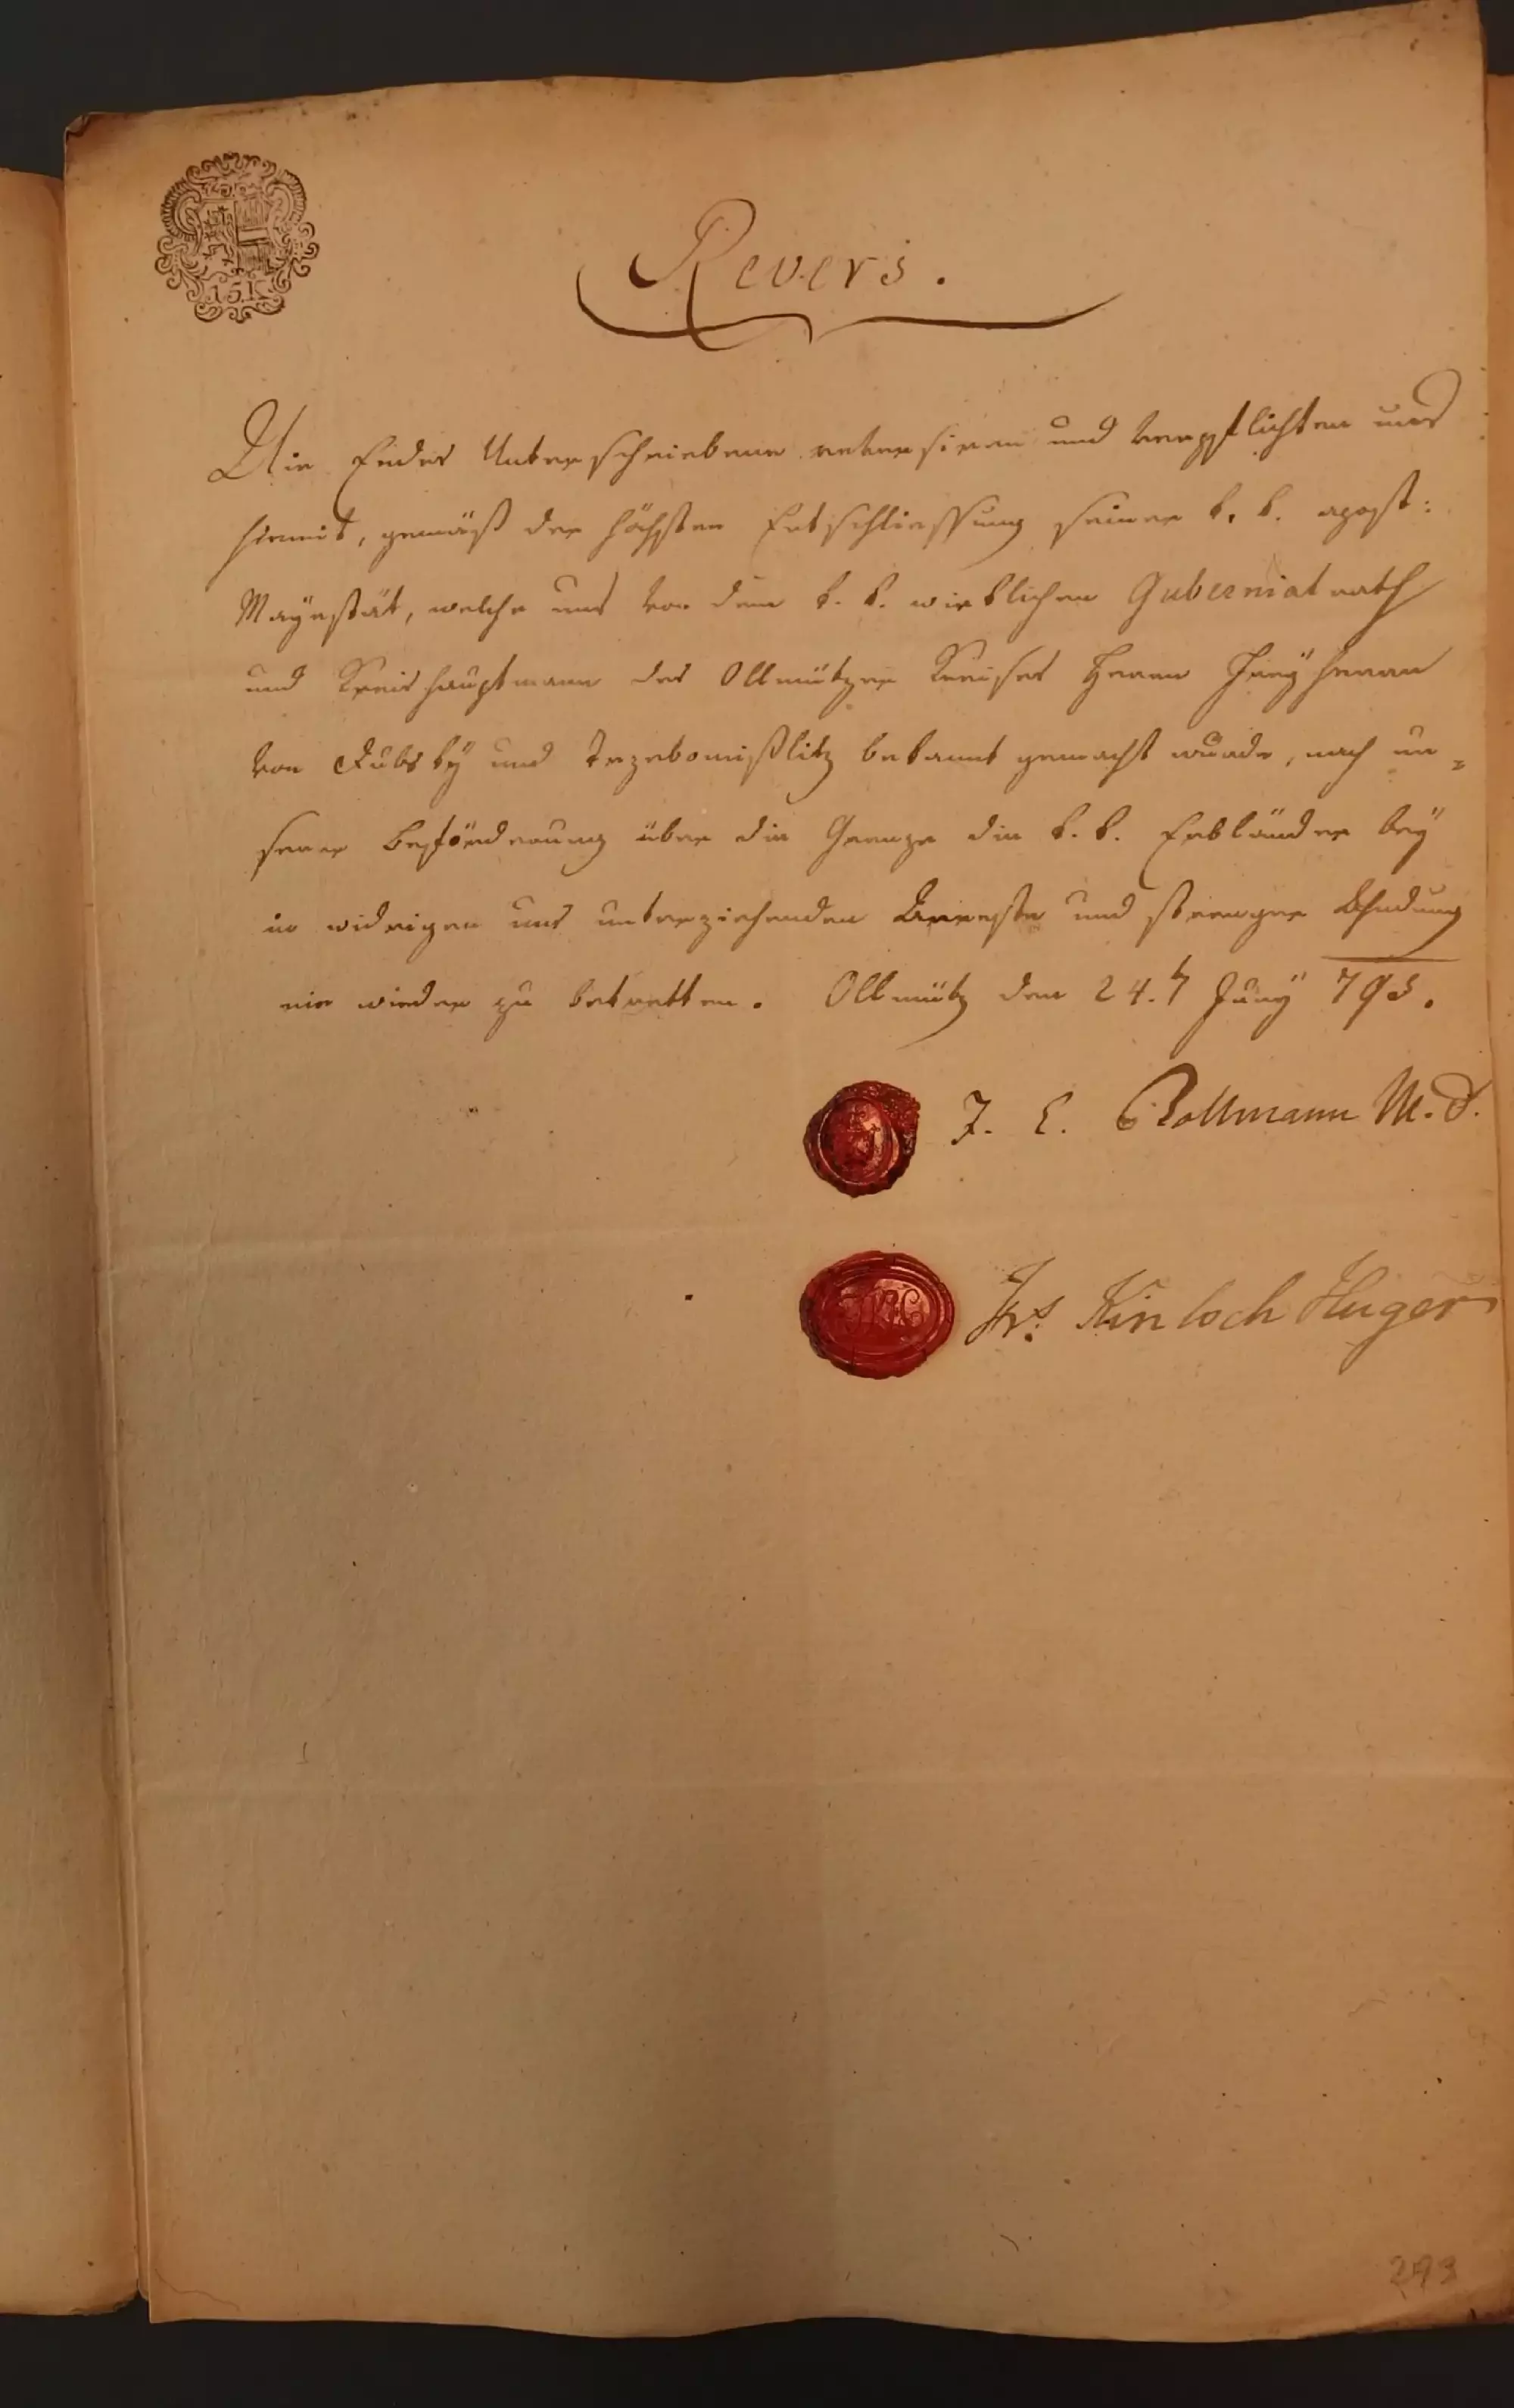 15 K
Revers.
Wir Endes Unterschriebene reversiren und verpflichten uns
hiemit, gemäß der höchsten Entschliessung seiner k. k. apost:
Mayestät, welche uns von dem k. k. wirklichen Gubernialrath
und Kreishauptmann des Ollmützer Kreises Herrn Freyherrn
von Dubsky und Trzebomißlitz bekannt gemacht wurde, nach un=
serer Beförderung über die Grenze die k. k. Erbländer bey
in widrigen uns unterziehenden Arreste und strenger Ahndung
nie wieder zu betretten. Ollmütz den 24.t Juny 795.
J. E. Bollmann M. D.
Frs. Kinloch Huger
293